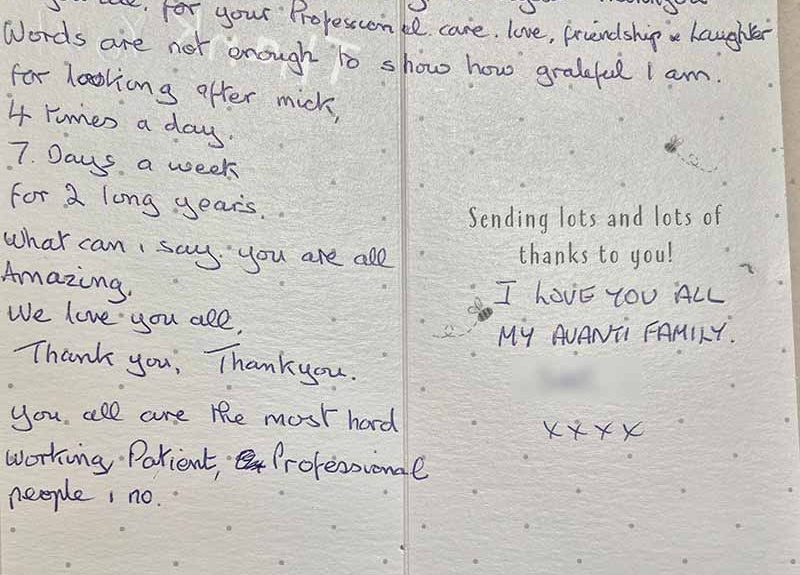 for your Professional care. love, friendship & Laughter
Words are not enough to show how grateful I am.
for looking after mick,
4 times a day.
7. Days a week
for 2 long years.
what can i say. you are all
Amazing.
We love you all,
Thank you, Thankyou.
you all are the most hard
working, Patient, Professional
people i no.
Sending lots and lots of
thanks to you!
I LOVE YOU ALL
MY AVANTI FAMILY.
xxxx